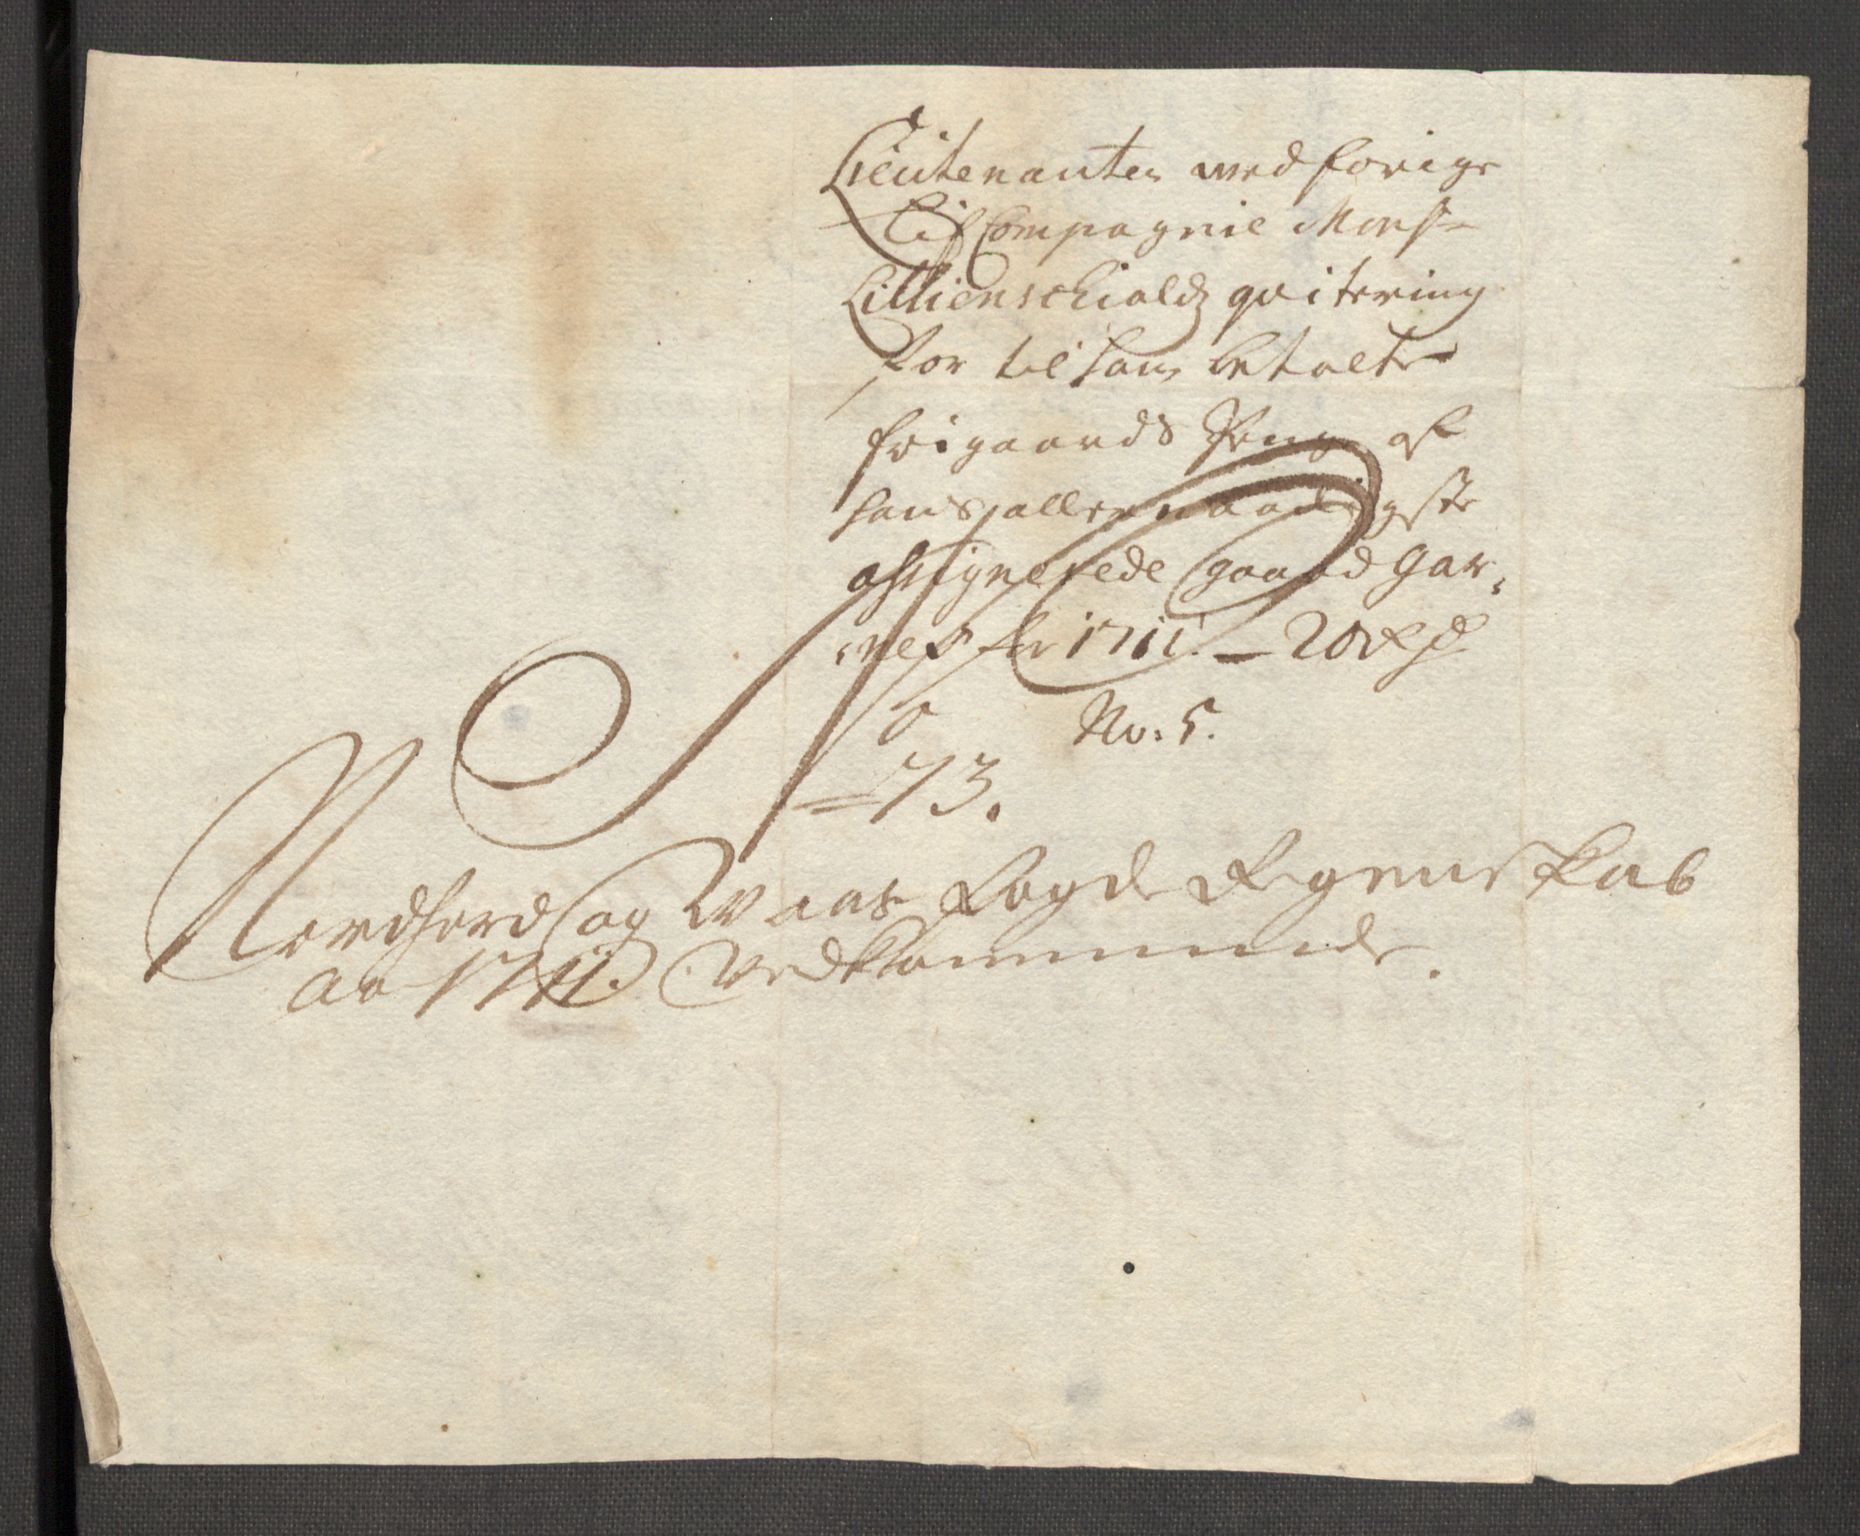 Lieutenanten ved forige
Lif Compagnie Monsr
Lillienschiolds qvitering
for til ham betalte
frigaards Penge af
hans allernaadigste
assignerede gaard Gar,
,nes for 1711. – 20 Rdr
No: 5.
73.
Nordhord og Waas Fogde Regenskab
Ao 1711. Vedkommende.